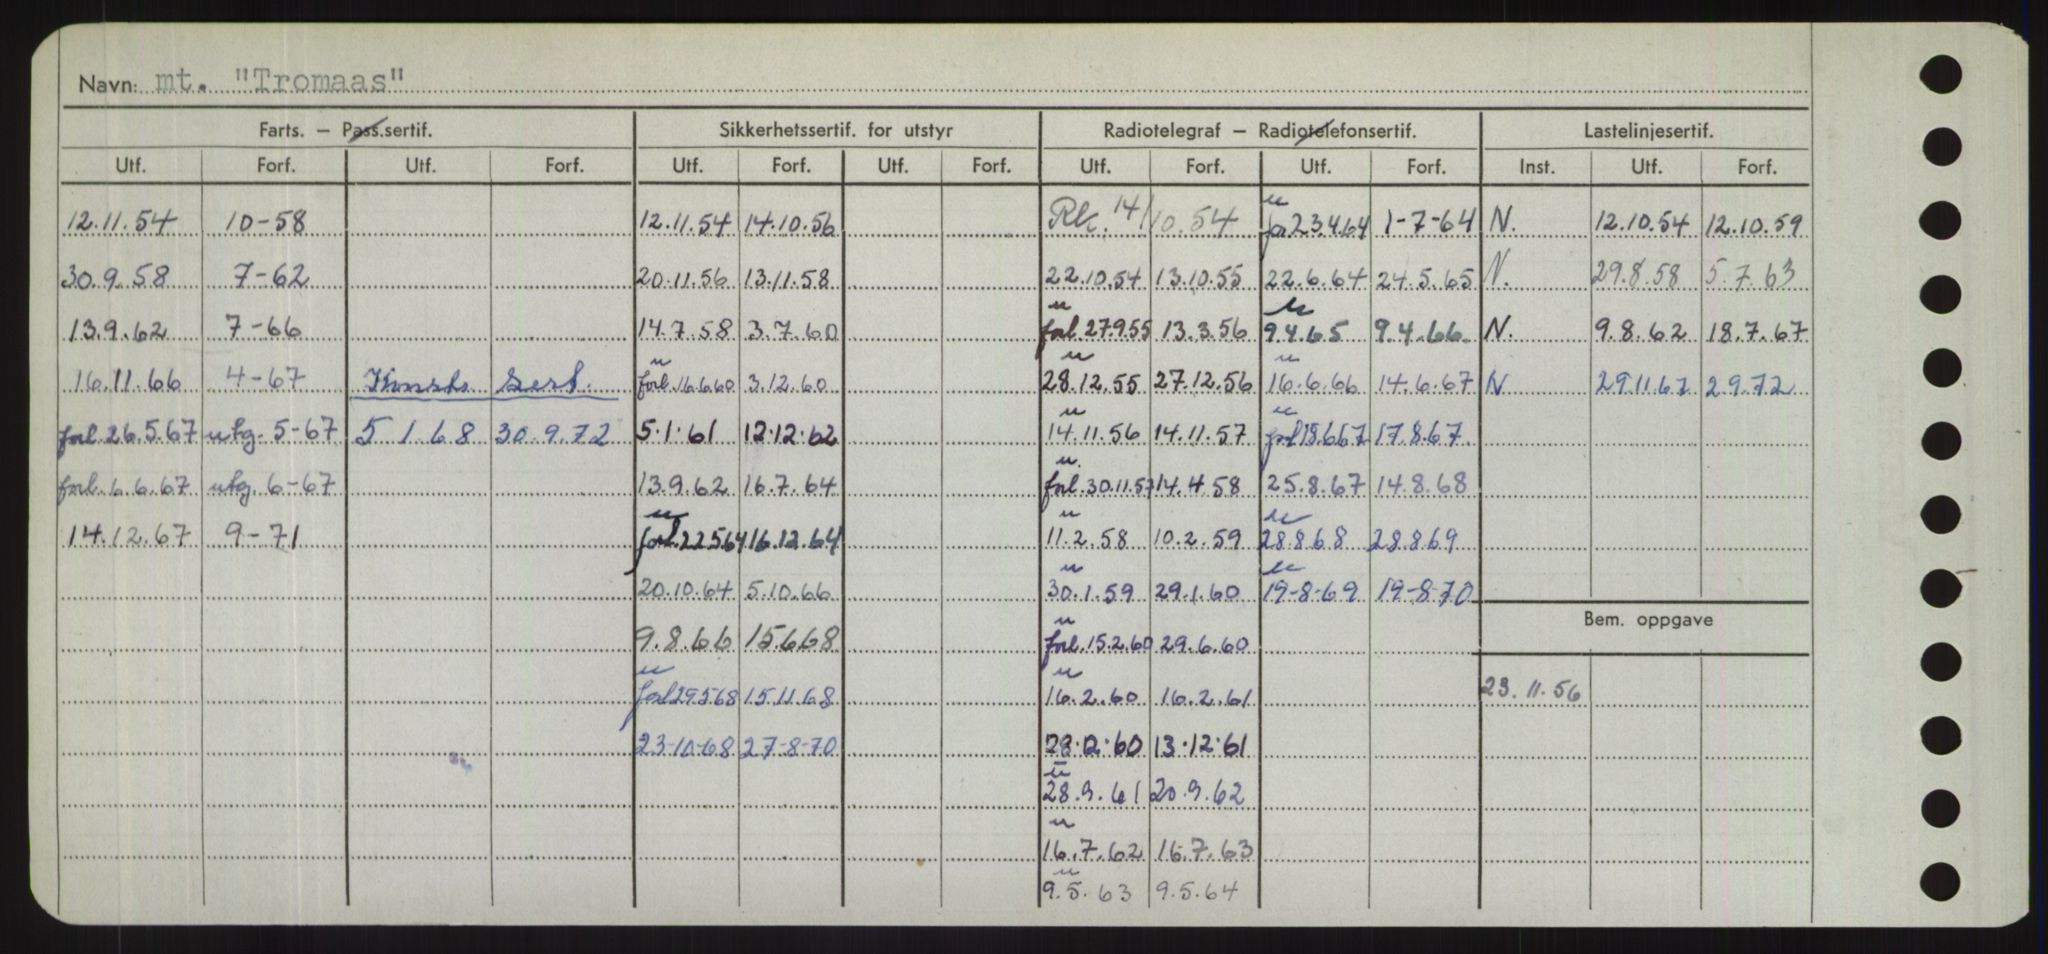 Navn: mt. "Tromaas"
Farts. – Pass.sertif. Sikkerhetssertif. for utstyr Radiotelegraf – Radiotelefonsertif. Lastelinjesertif.
Utf. Forf. Utf. Forf. Utf. Forf. Utf. Forf. Utf. Forf. Utf. Forf. Inst. Utf. Forf.
12.11.54 10-58 12.11.54 14.10.56 Rk. 14/10.54 u for 23.4.64 1-7-64 N. 12.10.54 12.10.59
30.9.58 7-62 20.11.56 13.11.58 22.10.54 13.10.55 22.6.64 24.5.65 N. 29.8.58 5.7.63
13.9.62 7-66 14.7.58 3.7.60 u forl. 27.9.55 13.3.56 u 9.4.65 9.4.66 N. 9.8.62 18.7.67
16.11.66 4-67 Konstr. Sert. u forl. 16.6.60 3.12.60 u 28.12.55 27.12.56 u 16.6.66 14.6.67 N 29.11.67 2.9.72
forl. 26.5.67 utg. 5-67 5.1.68 30.9.72 5.1.61 12.12.62 u 14.11.56 14.11.57 u forl 15.6.67 17.8.67
forl. 6.6.67 utg. 6-67 13.9.62 16.7.64 u. forl. 30.11.57 14.4.58 25.8.67 14.8.68
14.12.67 9-71 u forl. 22.5.64 16.12.64 u 11.2.58 10.2.59 u 28.8.68 28.8.69
20.10.64 5.10.66 u 30.1.59 29.1.60 u 19-8-69 19-8-70
9.8.66 15.6.68 u forl. 15.2.60 29.6.60
Bem. oppgave
u forl 29.5.68 15.11.68 u 16.2.60 16.2.61 23.11.56
23-10-68 27-8-70 28.12.60 13.12.61
u 28.9.61 20.9.62
u 16.7.62 16.7.63
u 9.5.63 9.5.64